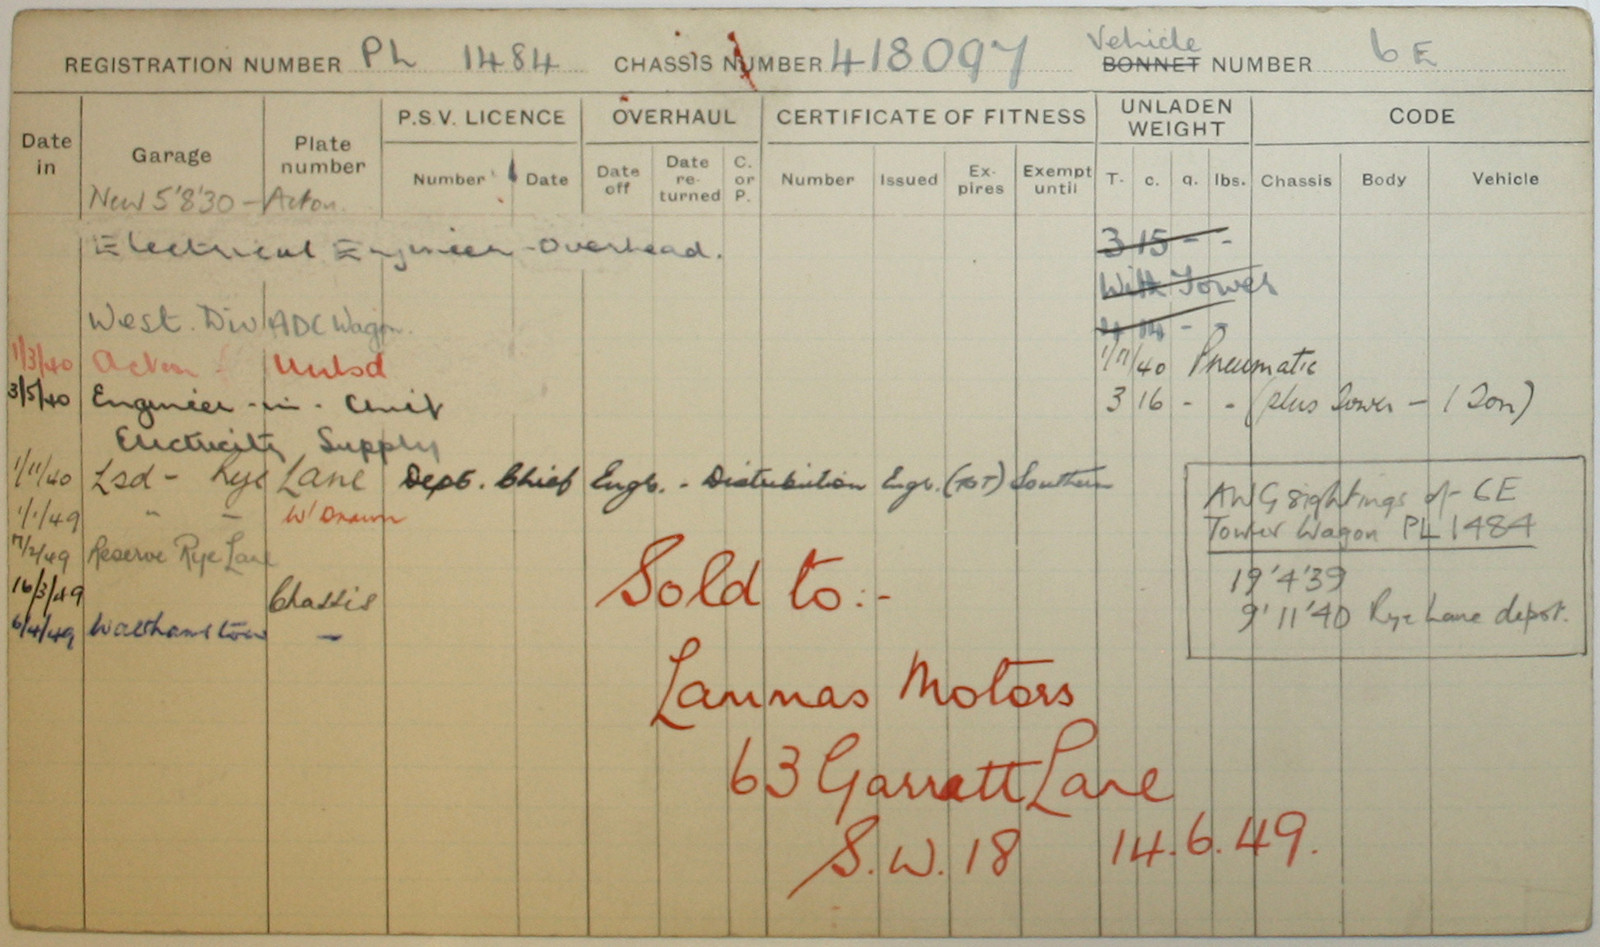 REGISTRATION NUMBER PL 1484 CHASSIS NUMBER 418097 Vehicle BONNET NUMBER 6E
Date in Garage Plate number P.S.V. LICENCE OVERHAUL CERTIFICATE OF FITNESS UNLADEN WEIGHT CODE
Number Date Date off Date re-turned C. or P. Number Issued Ex-pires Exempt until T. c. q. lbs. Chassis Body Vehicle
New 5'8'30 - Acton.
Electrical Engineer - Overhead. 3 15 - -
With Tower
West. Div ADC Wagon. 4 14 - -
1/3/40 Acton Unlsd 1/11/40 Pneumatic
3/5/40 Engineer-in-Chief 3 16 - - (plus Tower - 1 Ton)
Electricity Supply
1/11/40 Lsd - Rye Lane Dept. Chief Engr. - Distribution Engr. (T&T) Southern
1/1/49 " - W/Drawn
7/2/49 Reserve Rye Lane
16/3/49 Chassis
6/4/49 Walthamstow -
AWG sightings of 6E
Tower Wagon PL 1484
19'4'39
9'11'40 Rye Lane depot.
Sold to:-
Lannas Motors
63 Garratt Lane
S.W. 18 14.6.49.